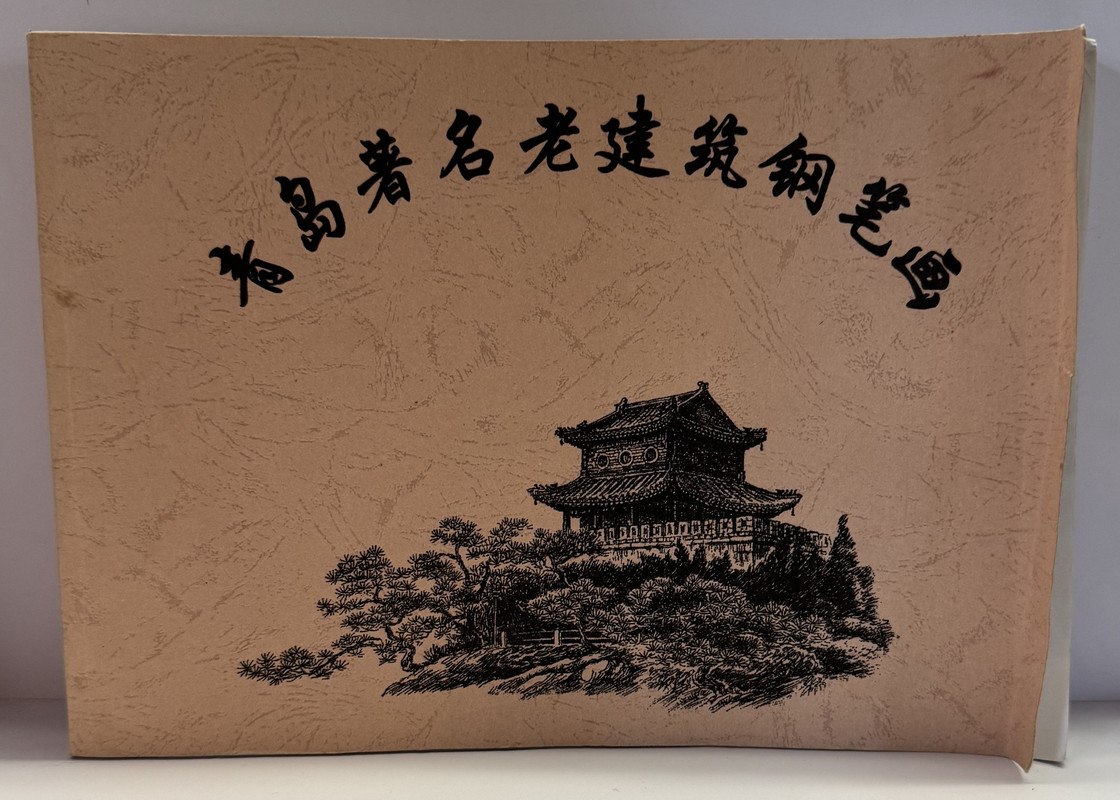 青岛著名老建筑钢笔画